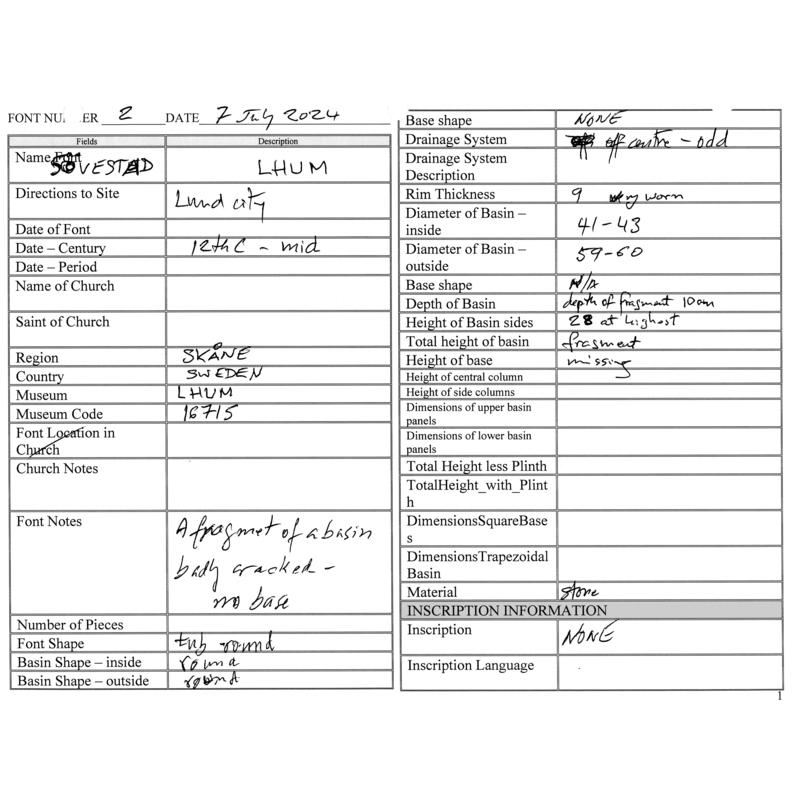 FONT NU ER 2 DATE 7 July 2024
Fields Description
Name Font SOVESTAD LHUM
Directions to Site Lund city
Date of Font
Date – Century 12thC - mid
Date – Period
Name of Church
Saint of Church
Region SKÅNE
Country SWEDEN
Museum LHUM
Museum Code 16715
Font Location in
Church
Church Notes
Font Notes A fragmet of a basin
badly cracked -
no base
Number of Pieces
Font Shape tub round
Basin Shape – inside round
Basin Shape – outside round
Base shape NONE
Drainage System off centre - odd
Drainage System
Description
Rim Thickness 9 very worn
Diameter of Basin –
inside 41-43
Diameter of Basin –
outside 59-60
Base shape N/A
Depth of Basin depth of fragment 10cm
Height of Basin sides 28 at highest
Total height of basin fragment
Height of base missing
Height of central column
Height of side columns
Dimensions of upper basin
panels
Dimensions of lower basin
panels
Total Height less Plinth
TotalHeight_with_Plint
h
DimensionsSquareBase
s
DimensionsTrapezoidal
Basin
Material stone
INSCRIPTION INFORMATION
Inscription NONE
Inscription Language
1